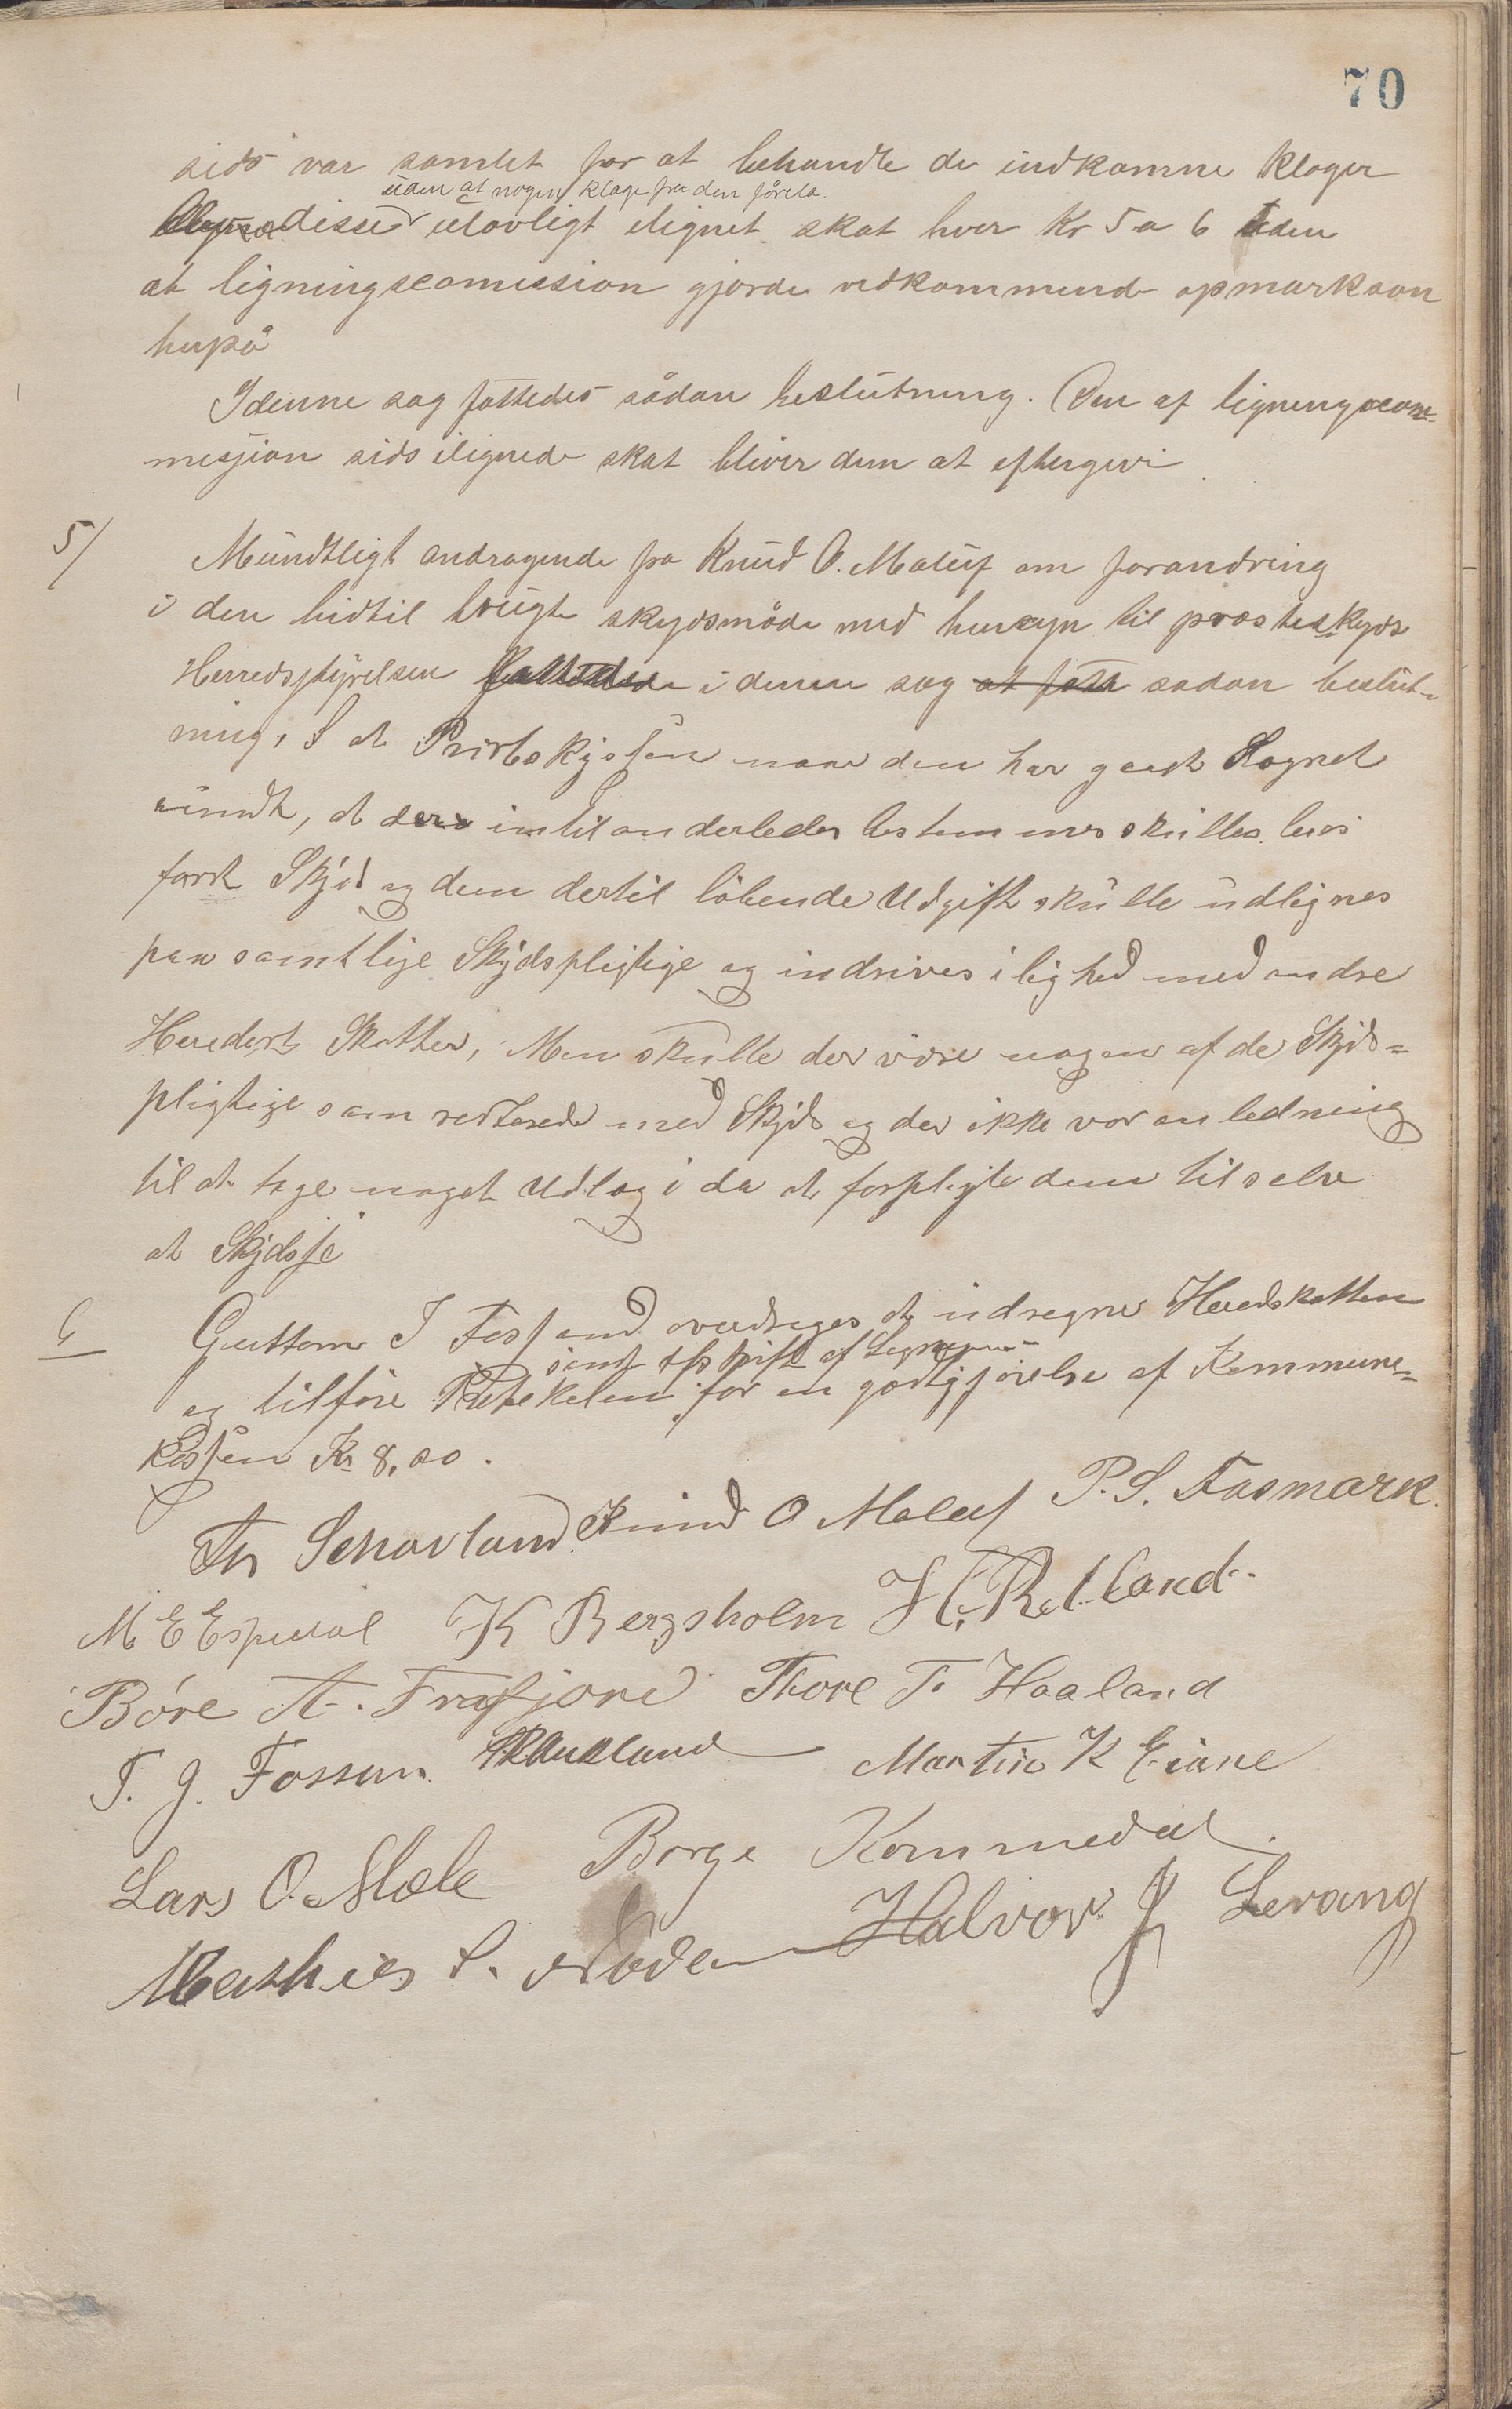 70
sids var samlet for at behandle de indkomne klager
uden at nogen klage fra den forela.
disse ulovligt ilignet skat hver Kr 5 a 6 uden
at ligningscomission gjorde vedkommende opmærksom
herpå
I denne sag fattedes sådan beslutning. Den af ligningscom-
misjion sids ilignede skat bliver dem at eftergivi
5/ Mundtligt andragende fra Knud O. Maluf om forandring
i den hidtil brugte skydsmåde med hensyn til prosteskyds
Herredsstyrelsen fattede i denne sag at fatte sadan beslut-
ning, at naar den har gaaet Sognet
rundt, at der intil anderledes bestemmes skulles leies
fast Skjds og dem dertil løbende Udgift skulle udlignes
paa samtlige Skydspligtige og indrives i lighed med andre
Herredets Skatter, Men skulle der være nogen af de Skyds-
pligtige som resterede med Skyds og der ikke var anledning
til at tage noget Udlæg i da at forpligte dem til selv
at Skydse
6 Guttorm I Fossand overdrages at udregne Heredskatten
samt afskrift af
og tilføre Protokolen for en godtgjørelse af Kommune-
kassen Kr 8,00.
Th Schovland Knud O Maluf P. S. Fasmark.
M E Espedal K Bergsholm H. Retland.
Børe A. Frafjord Thore T. Haaland
T. G. Fossan Haukland Martin K Eiane
Lars O. Mæle Børge Kommedal.
Mathies S. Halvor J Levang